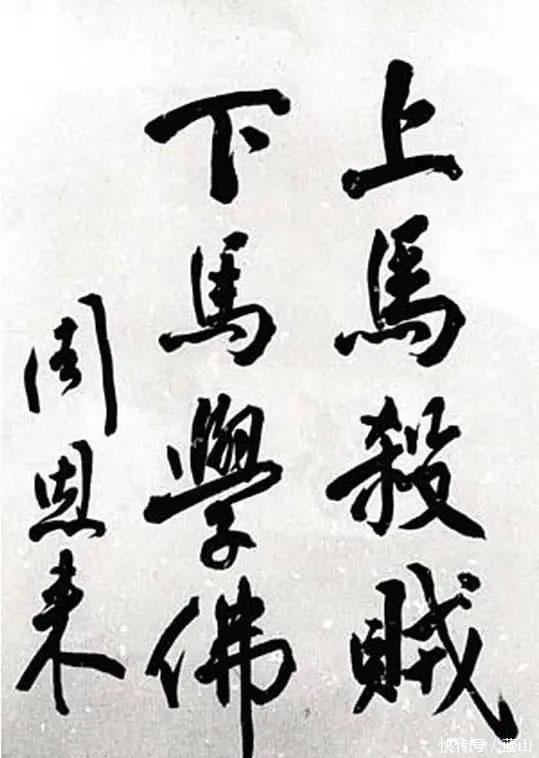 上馬殺賊
下馬學佛
周恩来
快传号/蓝山